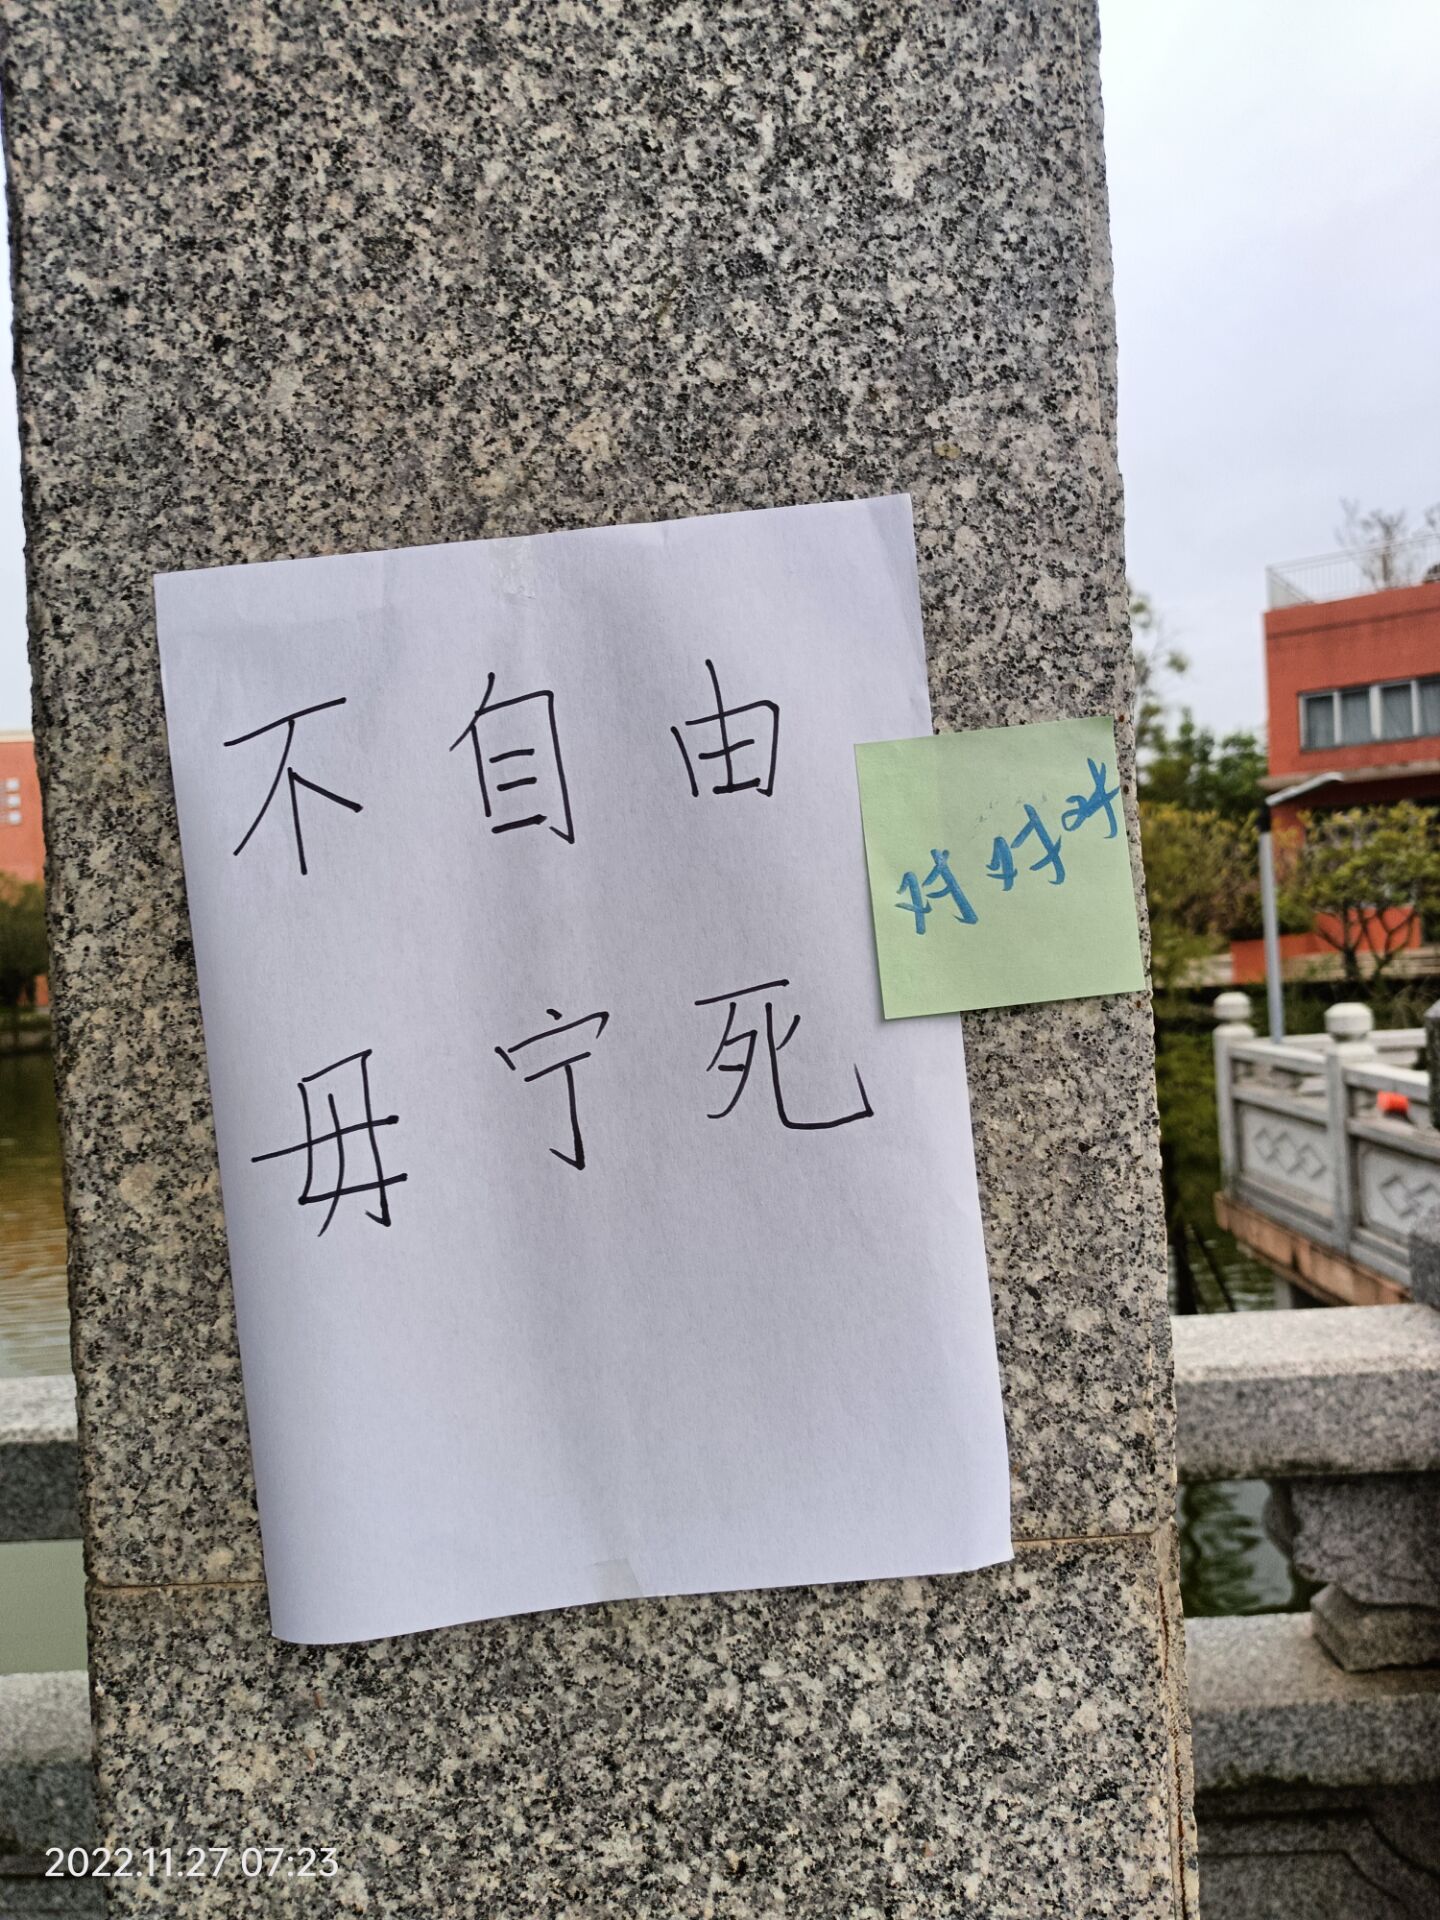 不自由
毋宁死
对对对
2022.11.27 07:23